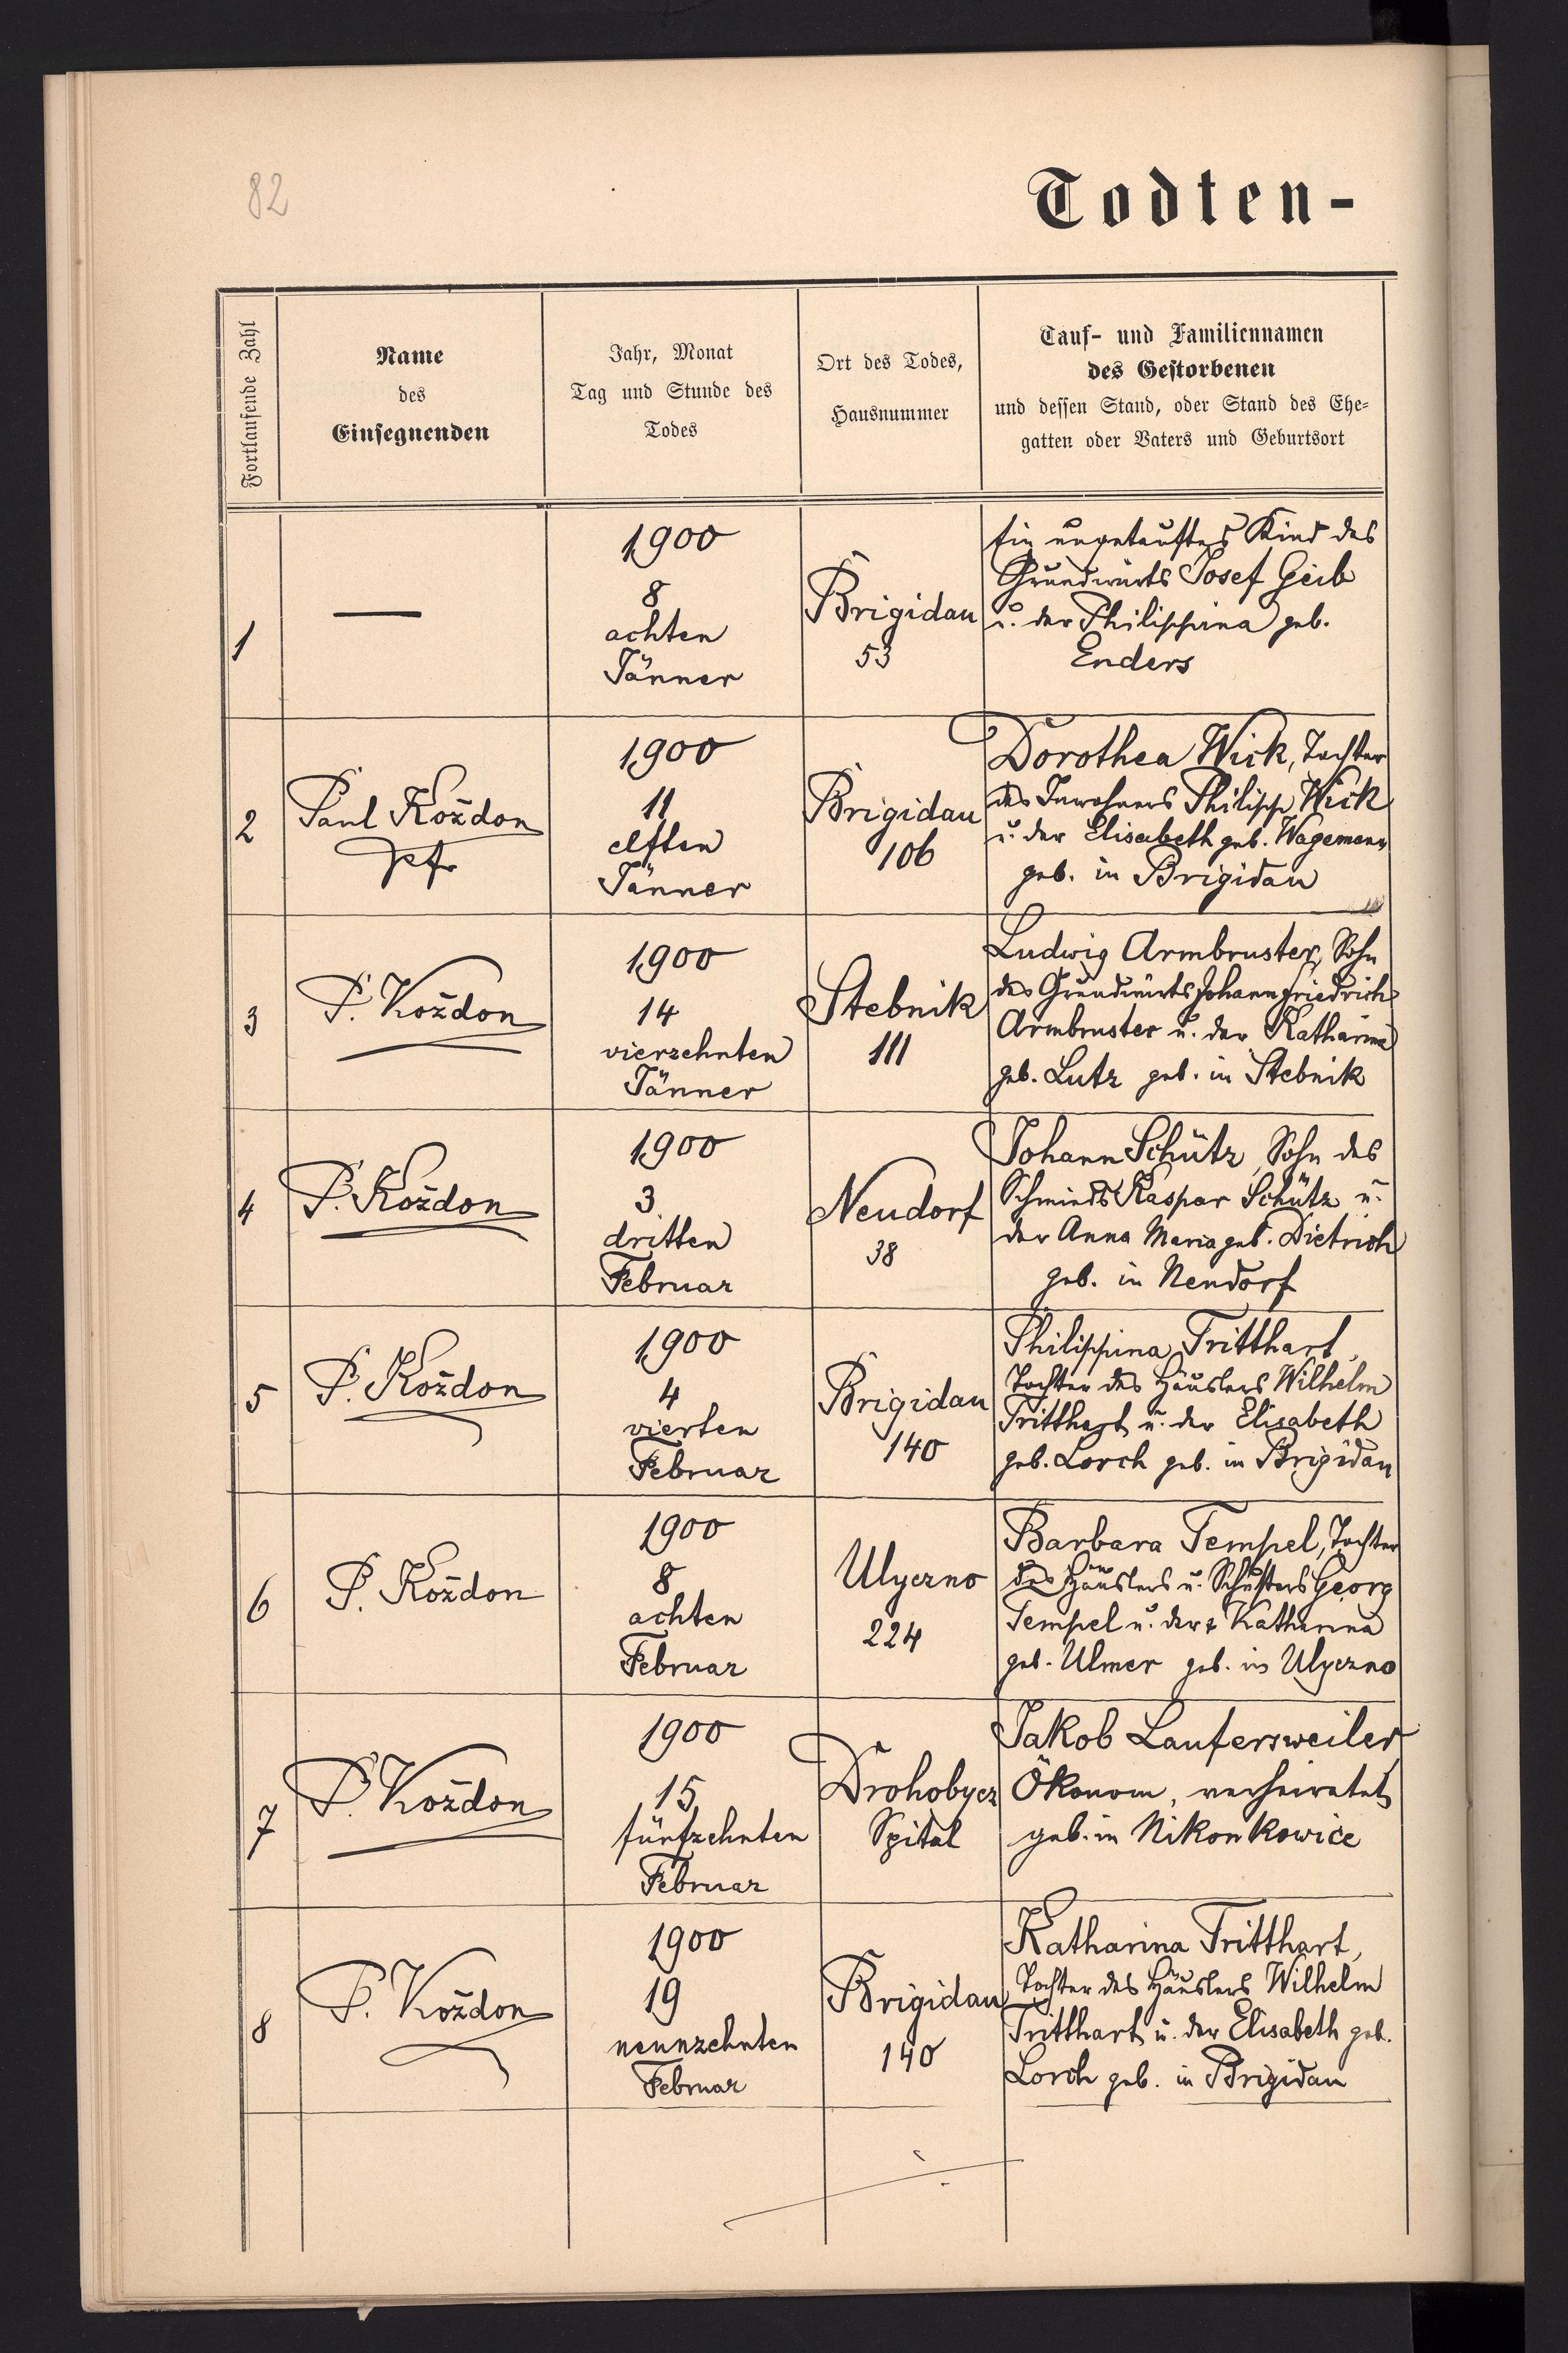 82
Todten-
Fortlaufende Zahl
Name
des
Einsegnenden
Jahr, Monat
Tag und Stunde des
Todes
Ort des Todes,
Hausnummer
Tauf- und Familiennamen
des Gestorbenen
und dessen Stand, oder Stand des Ehe-
gatten oder Vaters und Geburtsort
1
—
1900
8
achten
Jänner
Brigidau
53
Ein ungetauftes Kind des
Grundwirts Josef Geib
u. der Philippina geb.
Enders
2
Paul Koždon
Pfr
1900
11
elften
Jänner
Brigidau
106
Dorothea Wick, Tochter
des Inwohners Philipp Wick
u. der Elisabeth geb. Wagemann
geb. in Brigidau
3
P. Koždon
1900
14
vierzehnten
Jänner
Stebnik
111
Ludwig Armbruster, Sohn
des Grundwirts Johann Friedrich
Armbruster u. der Katharina
geb. Lutz geb. in Stebnik
4
P. Koždon
1900
3
dritten
Februar
Neudorf
38
Johann Schütz, Sohn des
Schmieds Kaspar Schütz u.
der Anna Maria geb. Dietrich
geb. in Neudorf
5
P. Koždon
1900
4
vierten
Februar
Brigidau
140
Philippina Tritthart,
Tochter des Häuslers Wilhelm
Tritthart u. der Elisabeth
geb. Lorch geb. in Brigidau
6
P. Koždon
1900
8
achten
Februar
Ulyczno
224
Barbara Tempel, Tochter
des Häuslers u. Schusters Georg
Tempel u. der Katharina
geb. Ulmer geb. in Ulyczno
7
P. Koždon
1900
15
fünfzehnten
Februar
Drohobycz
Spital
Jakob Laufersweiler
Ökonom, verheiratet
geb. in Nikonkowice
8
P. Koždon
1900
19
neunzehnten
Februar
Brigidau
140
Katharina Tritthart,
Tochter des Häuslers Wilhelm
Tritthart u. der Elisabeth geb.
Lorch geb. in Brigidau